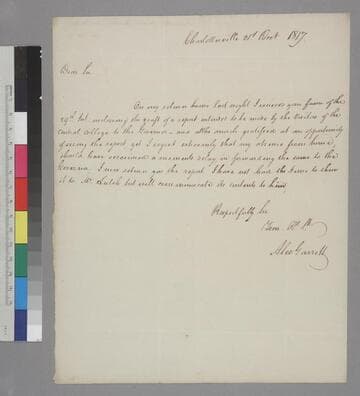 Charlottesville 21st Octr 1817.
Dear Sir
On my return home last night I received your favor of the
29th Ult. enclosing the draft of a report intended to be made by the Visitors of the
Central College to the Governor, and altho much gratified at an opportunity
of seeing the report yet I regret extremely that my absence from home
should have occasioned a moments delay in forwarding the same to the
Governor. I now return you the report I have not had the time to shew
it to Mr but will communicate its contents to him
Respectfully Sir
Your Ob. St.
Alex Garrett